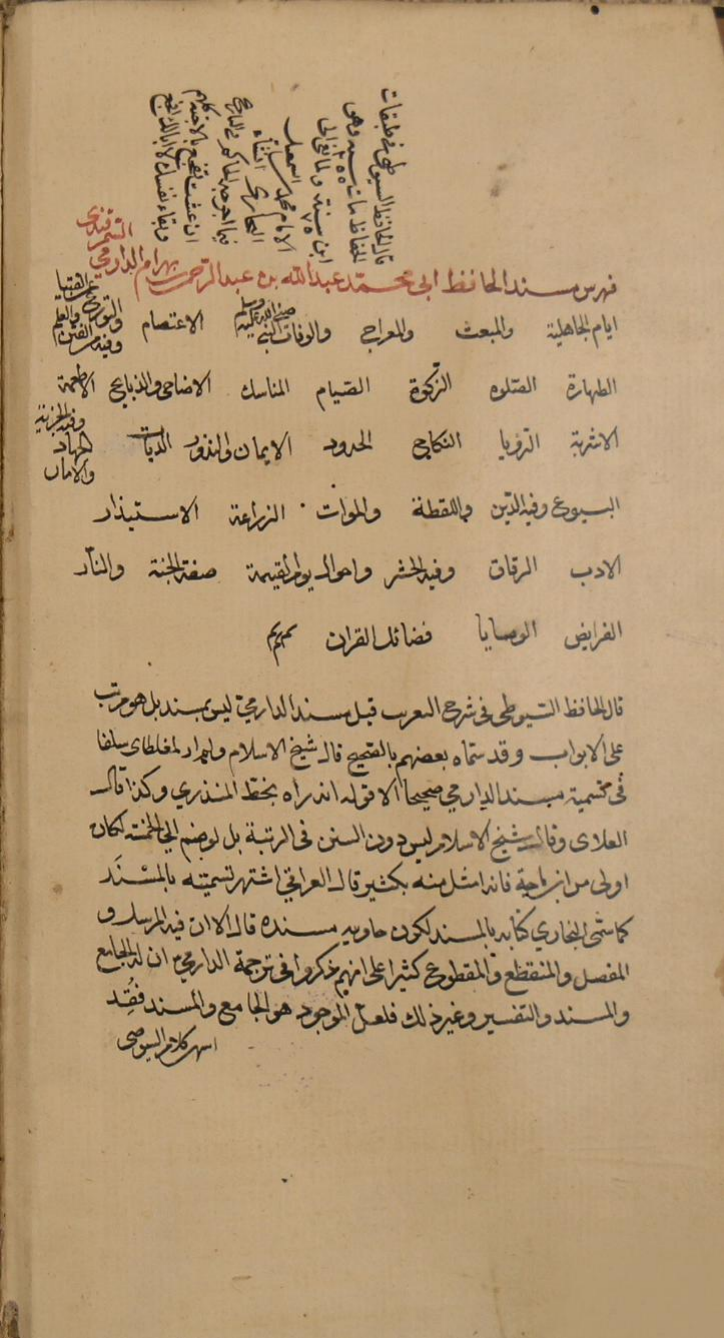 قال الحافظ السيوطي في طبقات
الحفاظ مات سنة ٢٥٥ وهو
ابن ٧٥ سنة ولما نعي الى
الامام محمد بن اسمعيل
البخاري انشاء
ان عشت تفجع بالاحبة كلهم
وبقاء نفسك لا ابا لك افجع
فهرس مسند الحافظ ابي محمد عبدالله بن عبد الرحمن بن بهرام الدارمي
السمرقندي
ايام الجاهلية والمبعث والمعراج والوفات النبي صلى الله عليه وسلم الاعتصام
وفيه من الفتن والعلم والتورع عن الفتيا
الطهارة الصلوة الزكوة الصيام المناسك الاضاحي والذبايح الاطعمة
الاشربة الرؤيا النكاح الحدود الايمان والنذور الديات
الجهاد وفيه الجزية والامان
البيوع وفيه الدين واللقطة والموات الزراعة الاستيذان
الادب الرقاق وفيه الحشر واحوال يوم القيمة صفة الجنة والنار
الفرايض الوصايا فضائل القران
قال الحافظ السيوطي في شرح التقريب قيل مسند الدارمي ليس بمسند بل هو مرتب
على الابواب وقد سماه بعضهم بالصحيح قال شيخ الاسلام ولم ار لمغلطاي سلفا
في تسمية مسند الدارمي صحيحا الا قوله انه راه بخط المنذري وكذا قال
العلائي وقال شيخ الاسلام ليس دون السنن في الرتبة بل لو ضم الى الخمسة لكان
اولى من ابن ماجة فانه امثل منه بكثير قال العراقي اشتهر تسميته بالمسند
كما سمى البخاري كتابه بالمسند لكون احاديثه مسندة قال الا ان فيه المرسل و
المفصل والمنقطع والمقطوع كثيرا على انهم ذكروا في ترجمة الدارمي ان له الجامع
والمسند والتفسير وغير ذلك فلعل الموجود هو الجامع والمسند فقد
انتهى كلام السيوطي